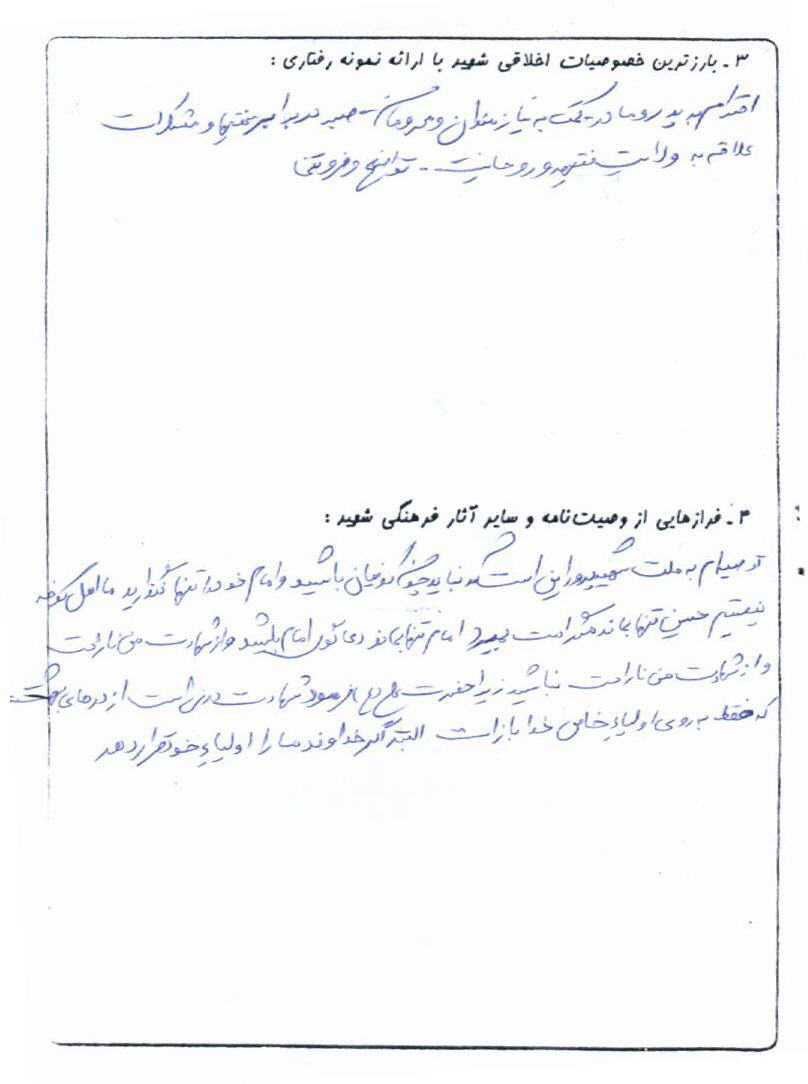 ۳ ـ بارزترین خصوصیات اخلاقی شهید با ارائه نمونه رفتاری :
احترام به پدر و مادر ـ کمک به نیازمندان و محرومان ـ صبر در برابر سختیها و مشکلات
علاقه به ولایت فقیه و روحانیت ـ تواضع و فروتنی
۴ ـ فرازهایی از وصیت‌نامه و سایر آثار فرهنگی شهید :
توصیه‌ام به ملت شهیدپرور این است که نباید چون کوفیان باشید و امام خود را تنها گذارید ما اهل کوفه
نیستیم حسین تنها بماند امام تنها بماند دعاگوی امام باشید و از شهادت من ناراحت
و از شهادت من ناراحت نباشید زیرا حضرت علی (ع) فرمود شهادت دری است از درهای بهشت
که فقط به روی اولیاء خاص خدا باز است البته اگر خداوند ما را اولیاء خود قرار دهد